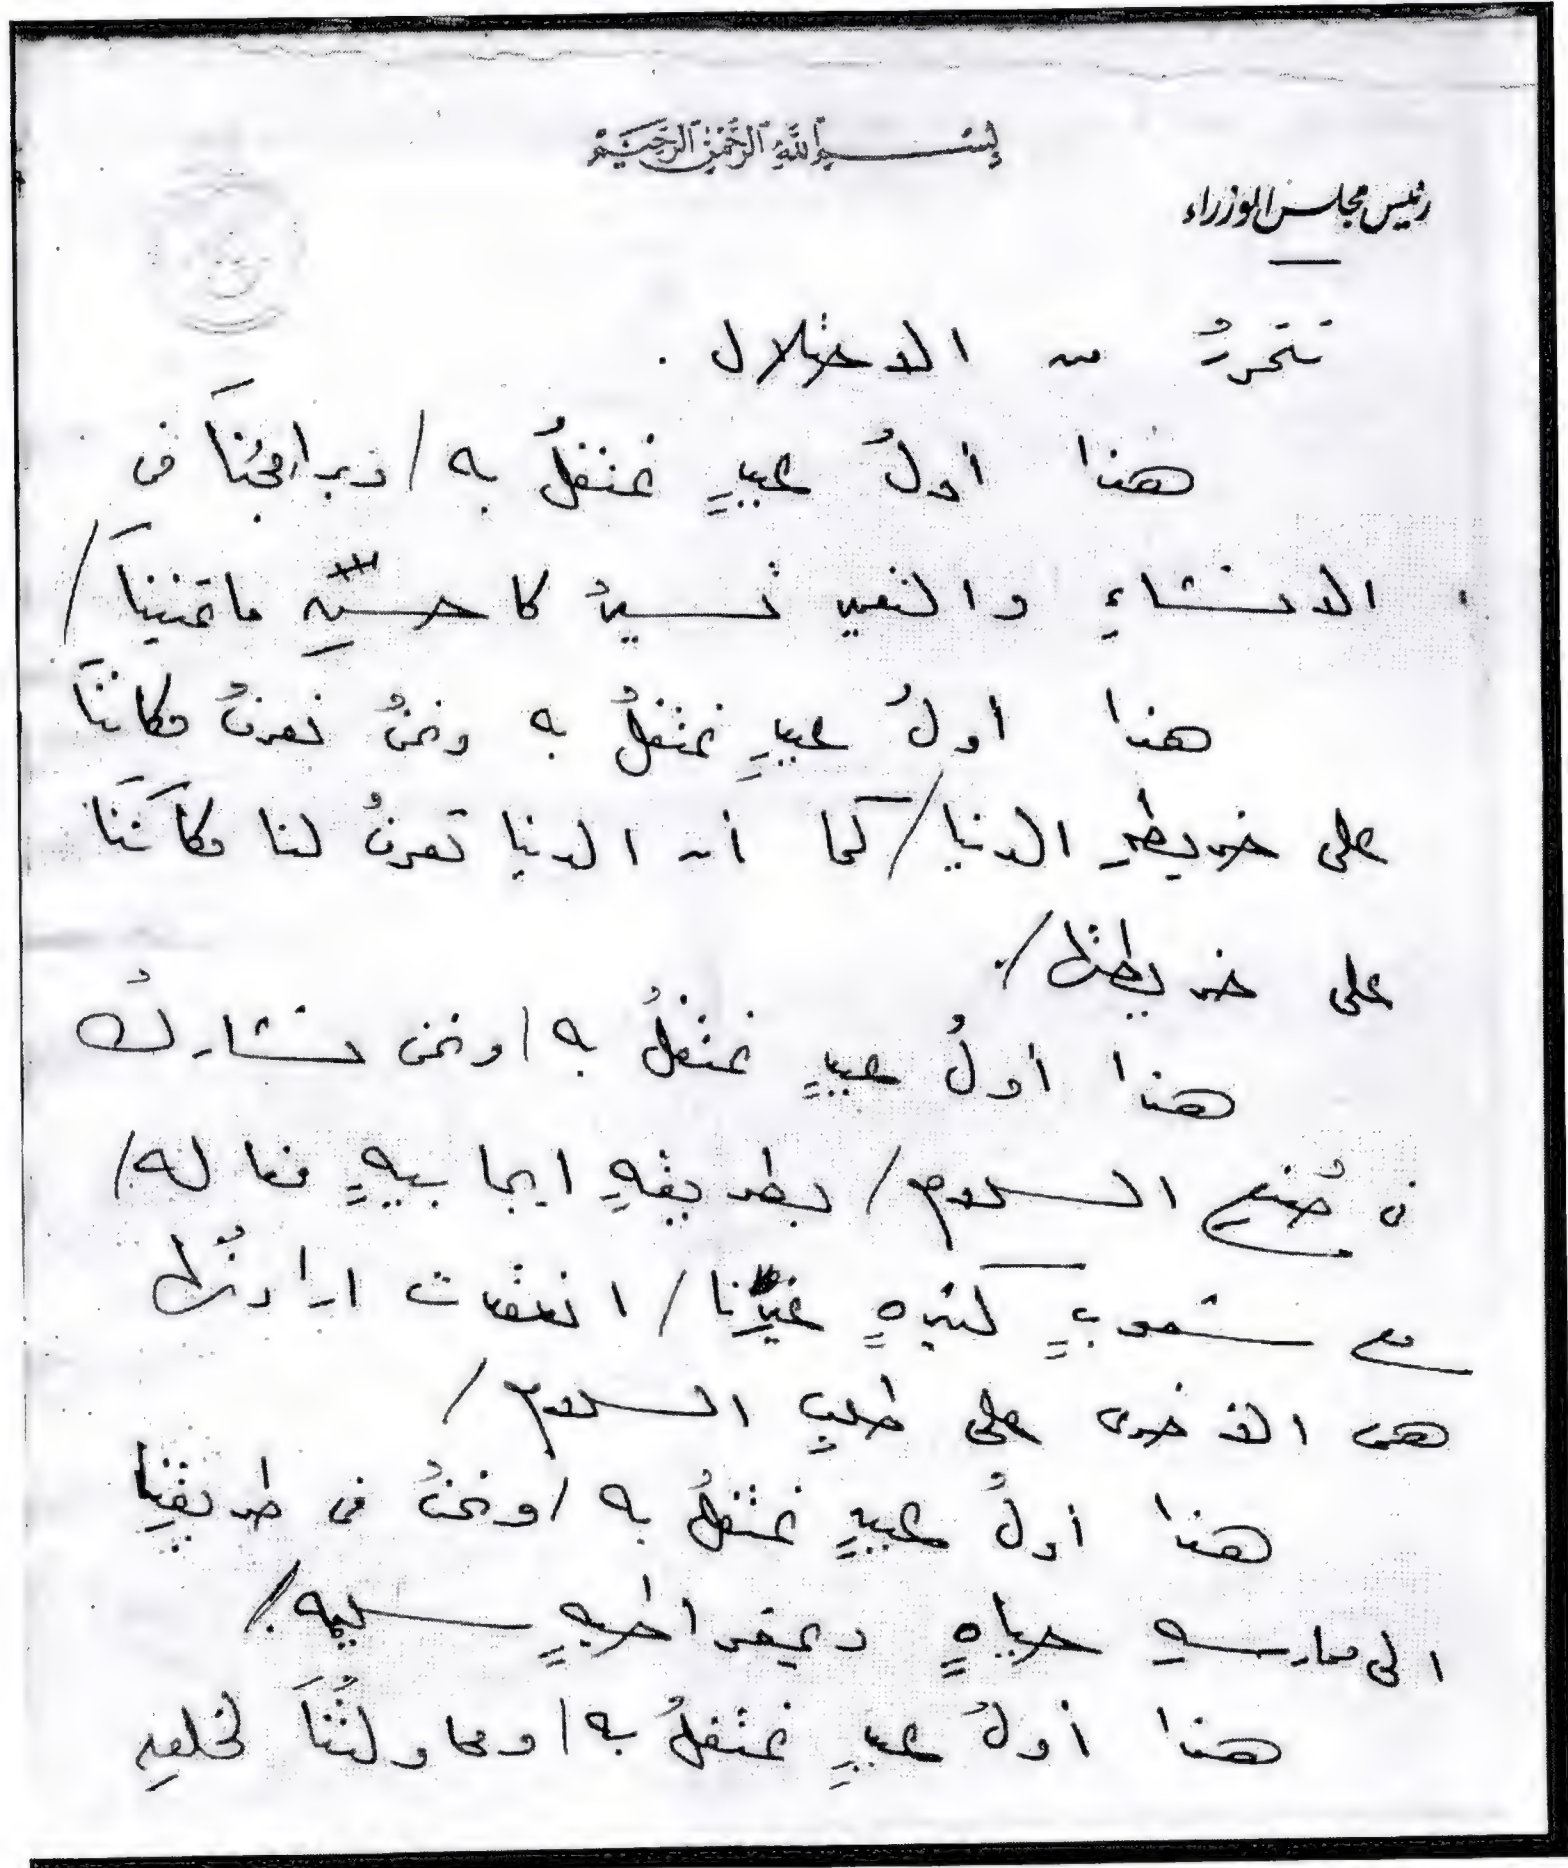 بسم الله الرحمن الرحيم
رئيس مجلس الوزراء
تتحررُ من الاحتلال .
هذا أولُ عيدٍ نحتفلُ به / وبرامجُنَا فى
الانشاءِ والتعمير تسيرُ كأحسنِ ما تمنينَا /
هذا أولُ عيدٍ نحتفلُ به ونحنُ نعرفُ مكاننَا
على خريطةِ الدنيا / كما أن الدنيا تعرفُ لنا مكانَنَا
على خريطتها /.
هذا أولُ عيدٍ نحتفلُ به / ونحن نشاركُ
فى صُنعِ السلام / بطريقةٍ ايجابيةٍ فعاله /
مع شعوبٍ كثيرهٍ غيرِنا / انعقدت ارادتُها
هى الأخرى على طلبِ السلام /
هذا أولُ عيدٍ نحتفلُ به / ونحنُ فى طريقِنا
الى ممارسةِ حياهٍ ديمقراطيهٍ سليمه /.
هذا أولُ عيدٍ نحتفلُ به / ومحاولتُنَا لخلقِ